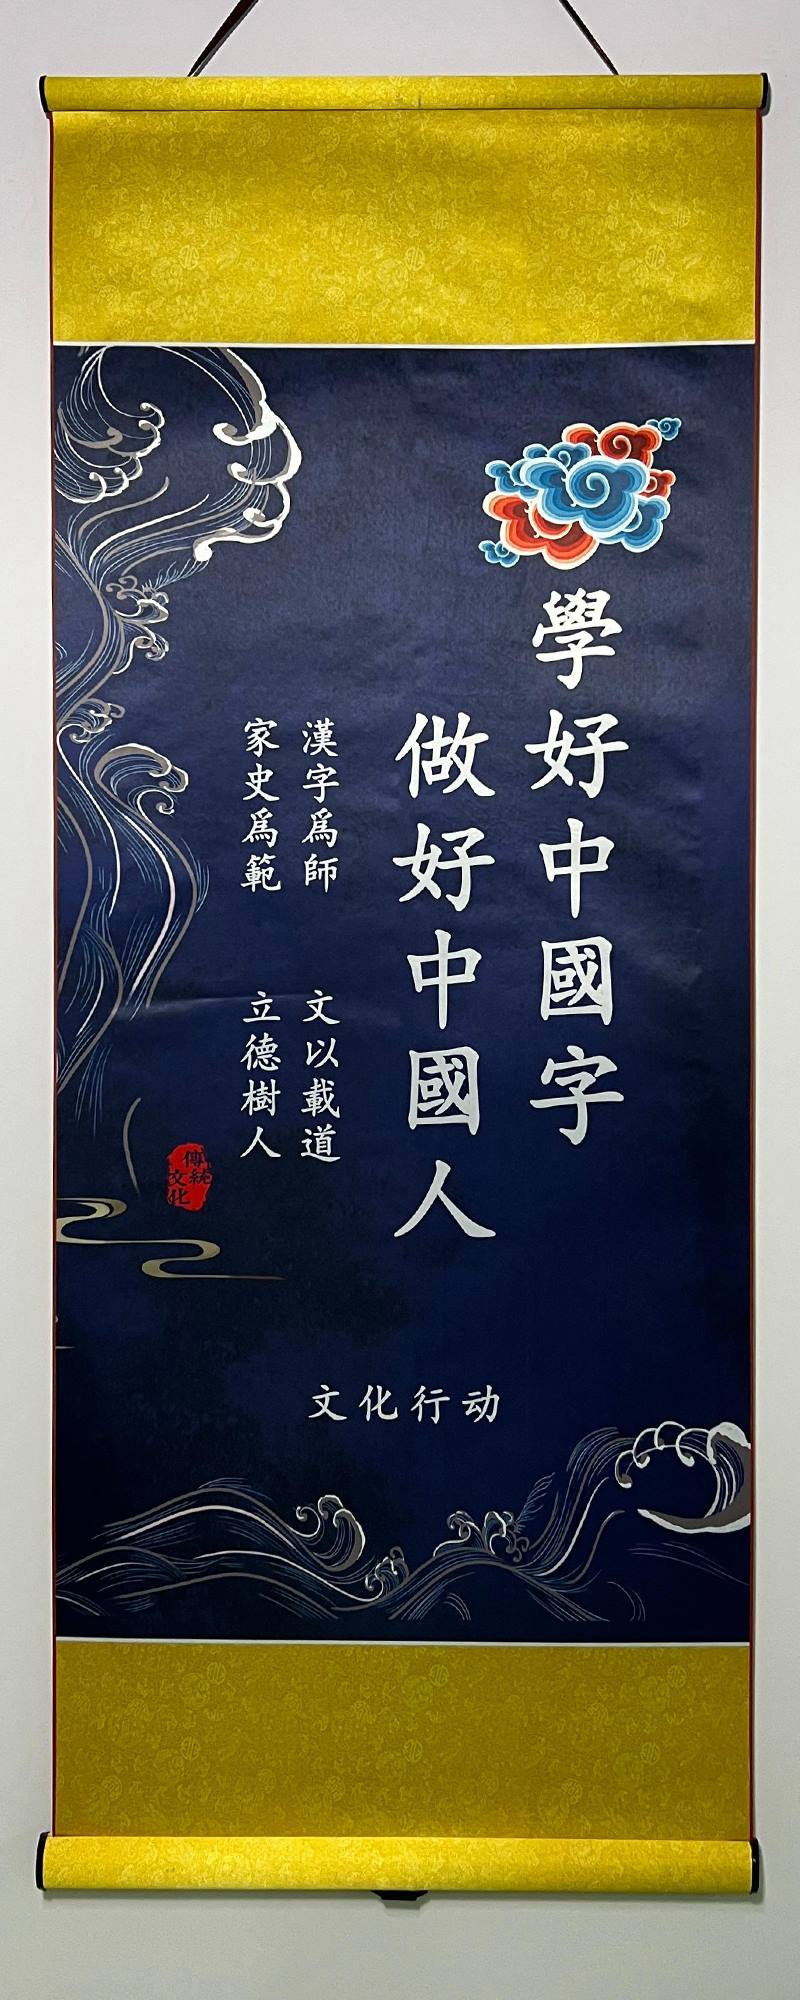 學好中國字
做好中國人
漢字爲師 文以載道
家史爲範 立德樹人
傳統
文化
文化行动